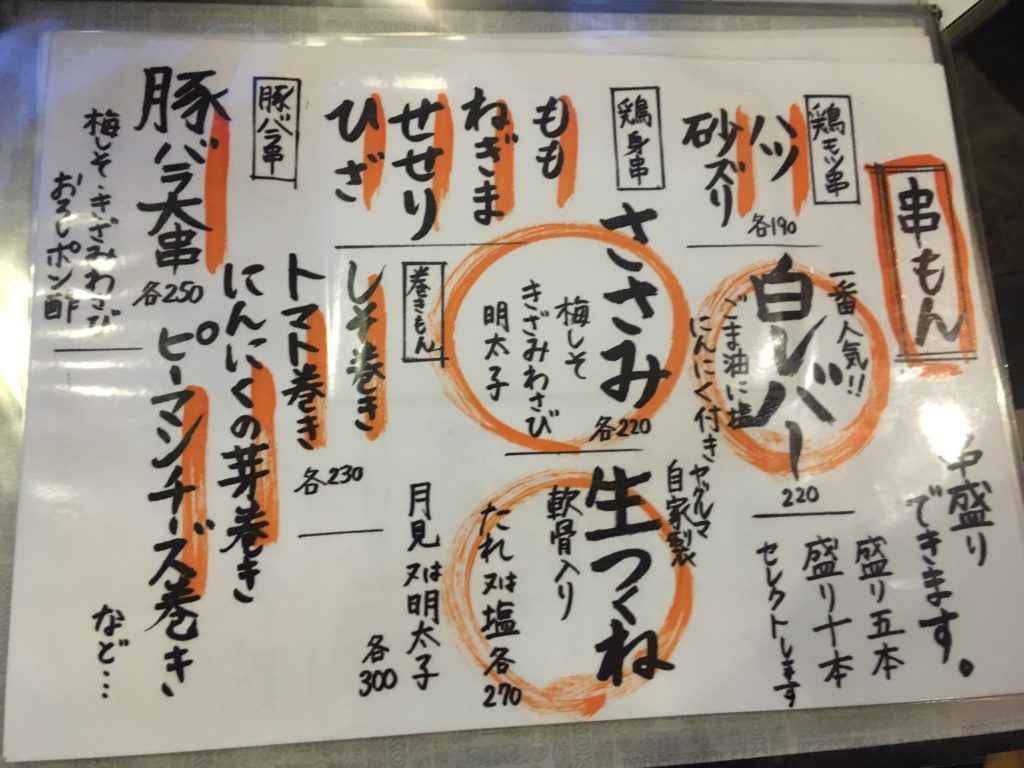 串もん
串盛り
できます。
盛り五本
盛り十本
セレクトします
鶏モツ串
ハツ
砂ズリ
各190
一番人気!!
白レバー
ごま油に塩
にんにく付き
220
鶏身串
もも
ねぎま
せせり
ひざ
ささみ
梅しそ
きざみわさび
明太子
各220
ヤゲルマ
自家製
生つくね
軟骨入り
たれ又は塩各270
月見又は明太子
各300
巻きもん
しそ巻き
トマト巻き
にんにくの芽巻き
ピーマンチーズ巻き
各230
など…
豚バラ串
豚バラ大串
各250
梅しそ・きざみわさび
おろしポン酢